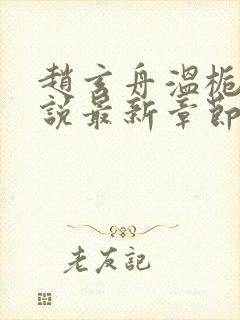 趙玄舟溫梔
說最新章節
老友記